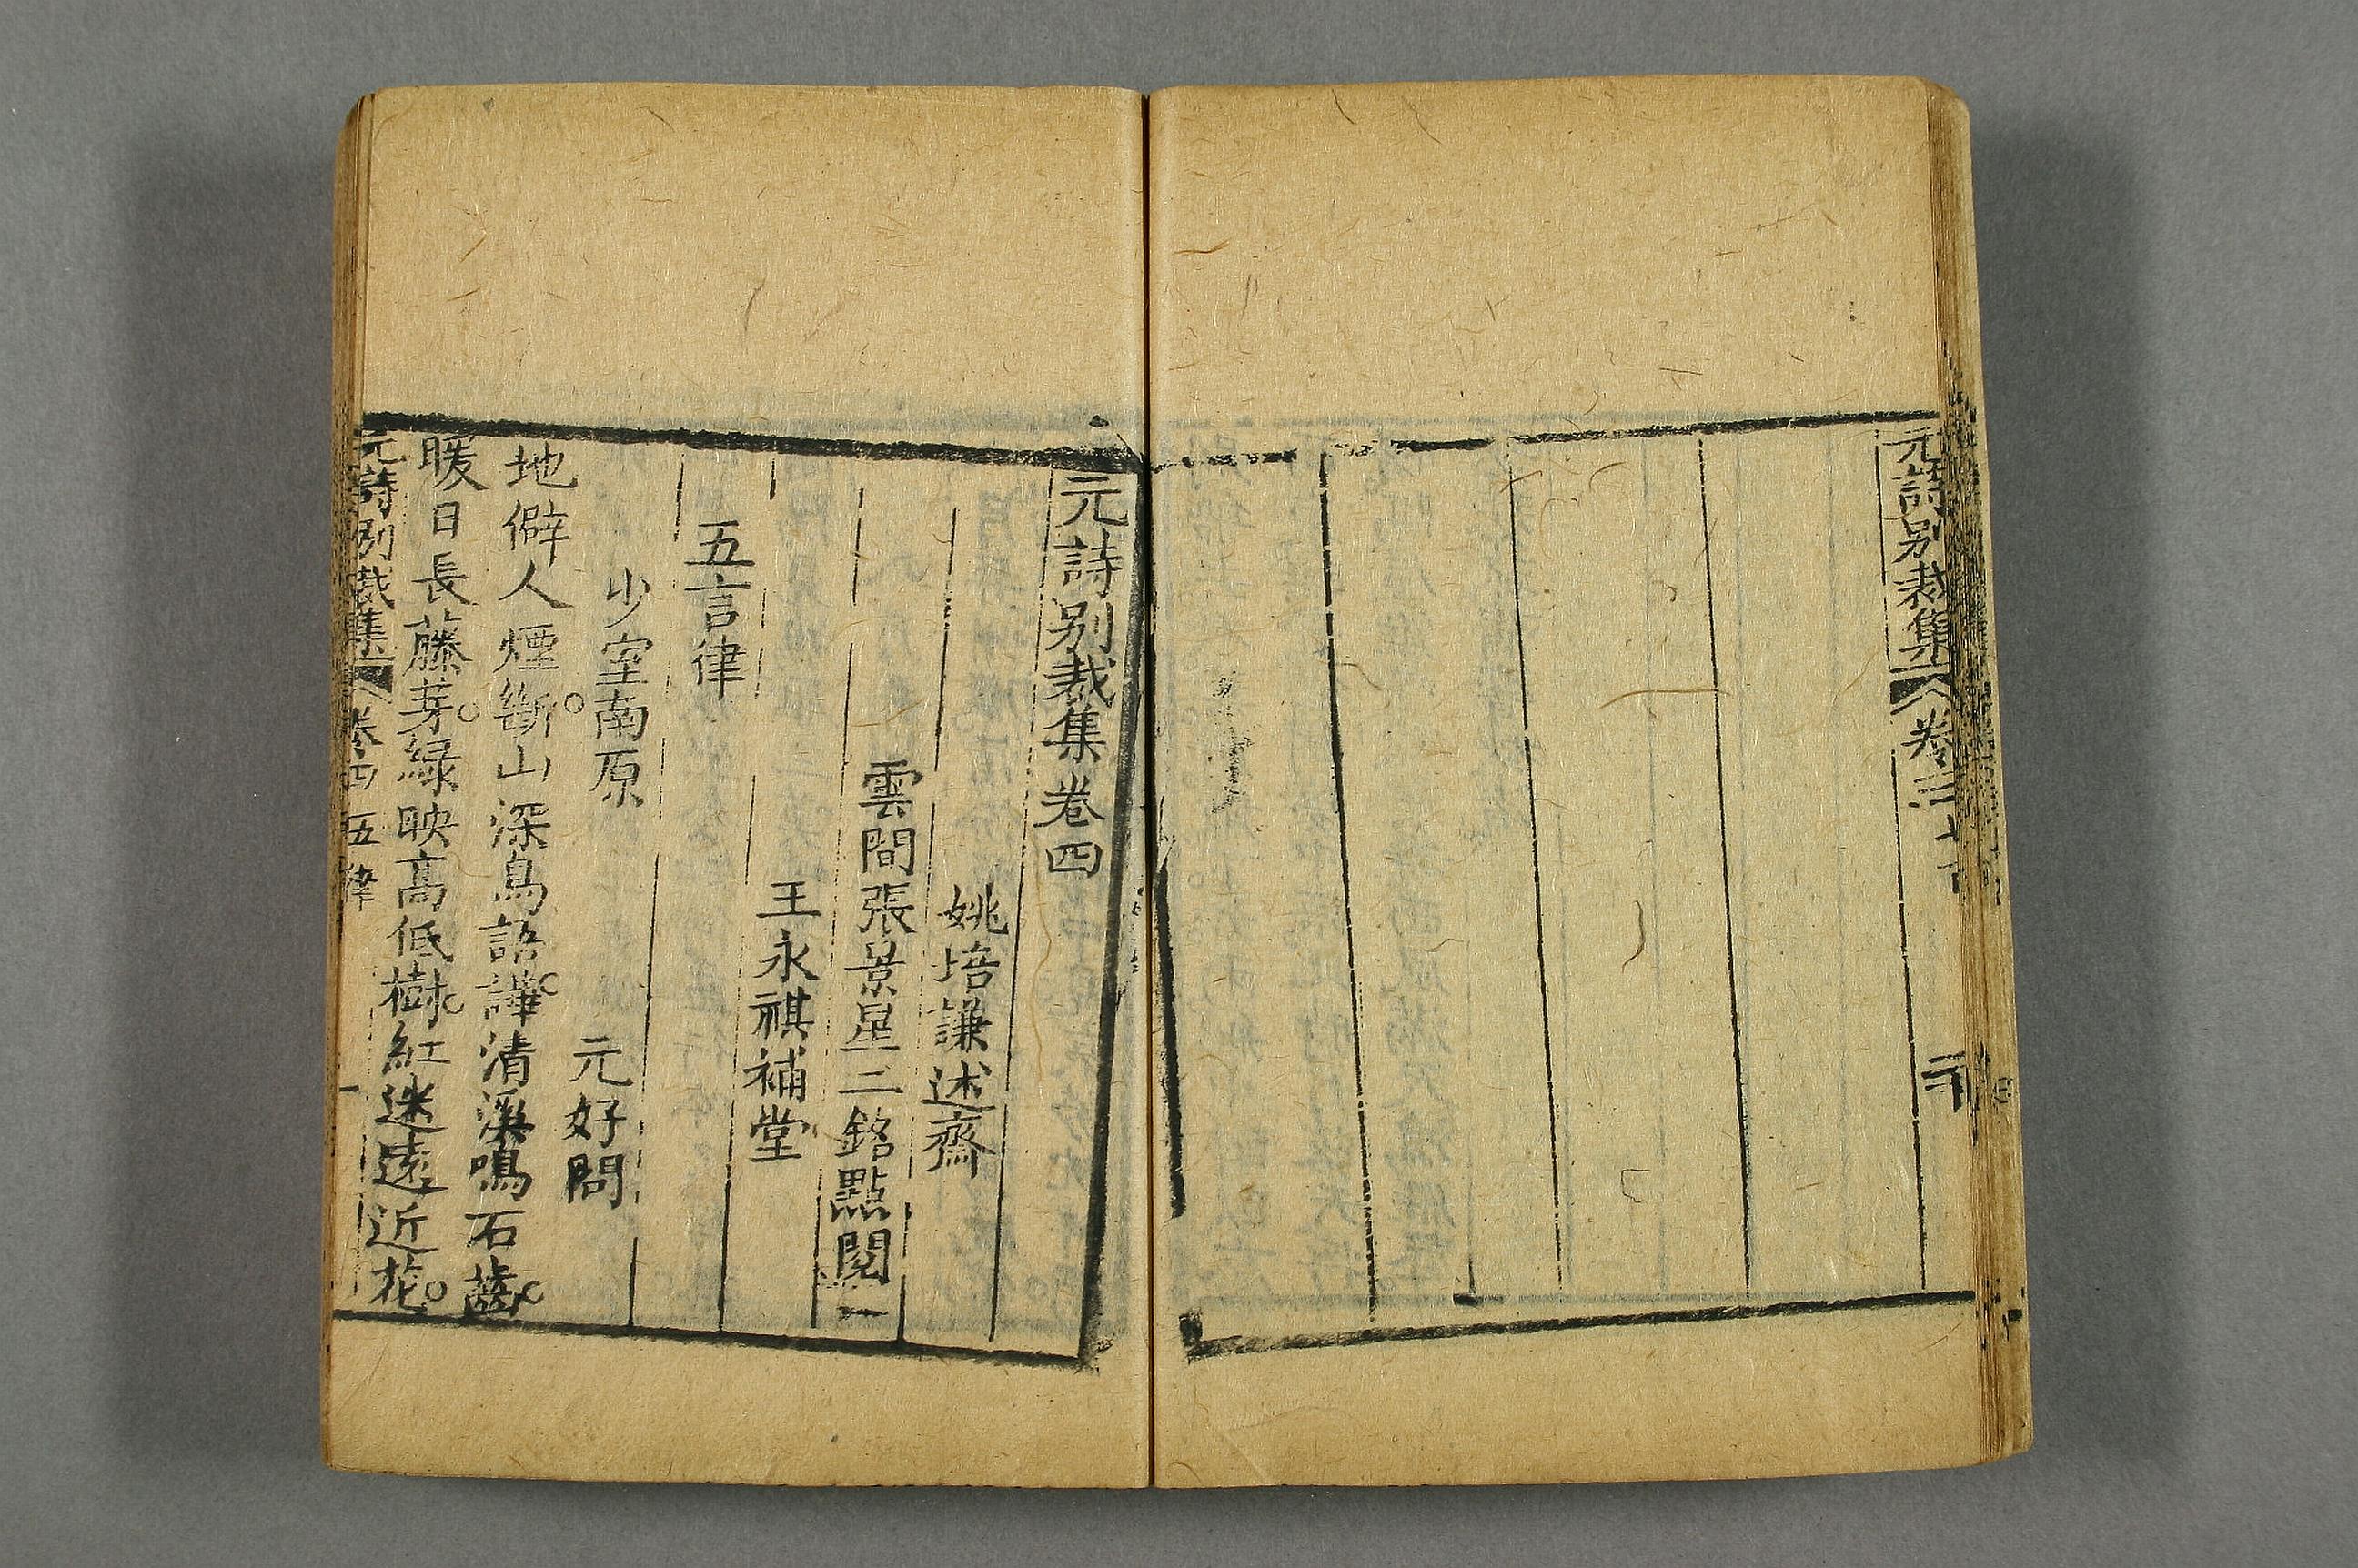 元詩别裁集
卷三
元詩别裁集卷四
姚培謙述齋
雲間張景星二銘點閱
王永祺補堂
五言律
少室南原
元好問
地僻人煙斷。山深鳥語譁。清溪鳴石齒。
暖日長藤芽。緑映高低樹。紅迷遠近花。
元詩别裁集
卷四
五律
一